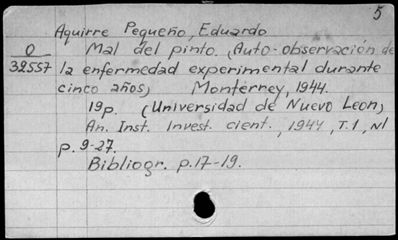 5
Aguirre Pequeño, Eduardo
O Mal del pinto. (Auto-observación de
32557 la enfermedad experimental durante
cinco años) Monterrey, 1944.
19p. (Universidad de Nuevo Leon)
An. Inst. Invest. cient., 1944, T.1, N1
p. 9-27.
Bibliogr. p.17-19.